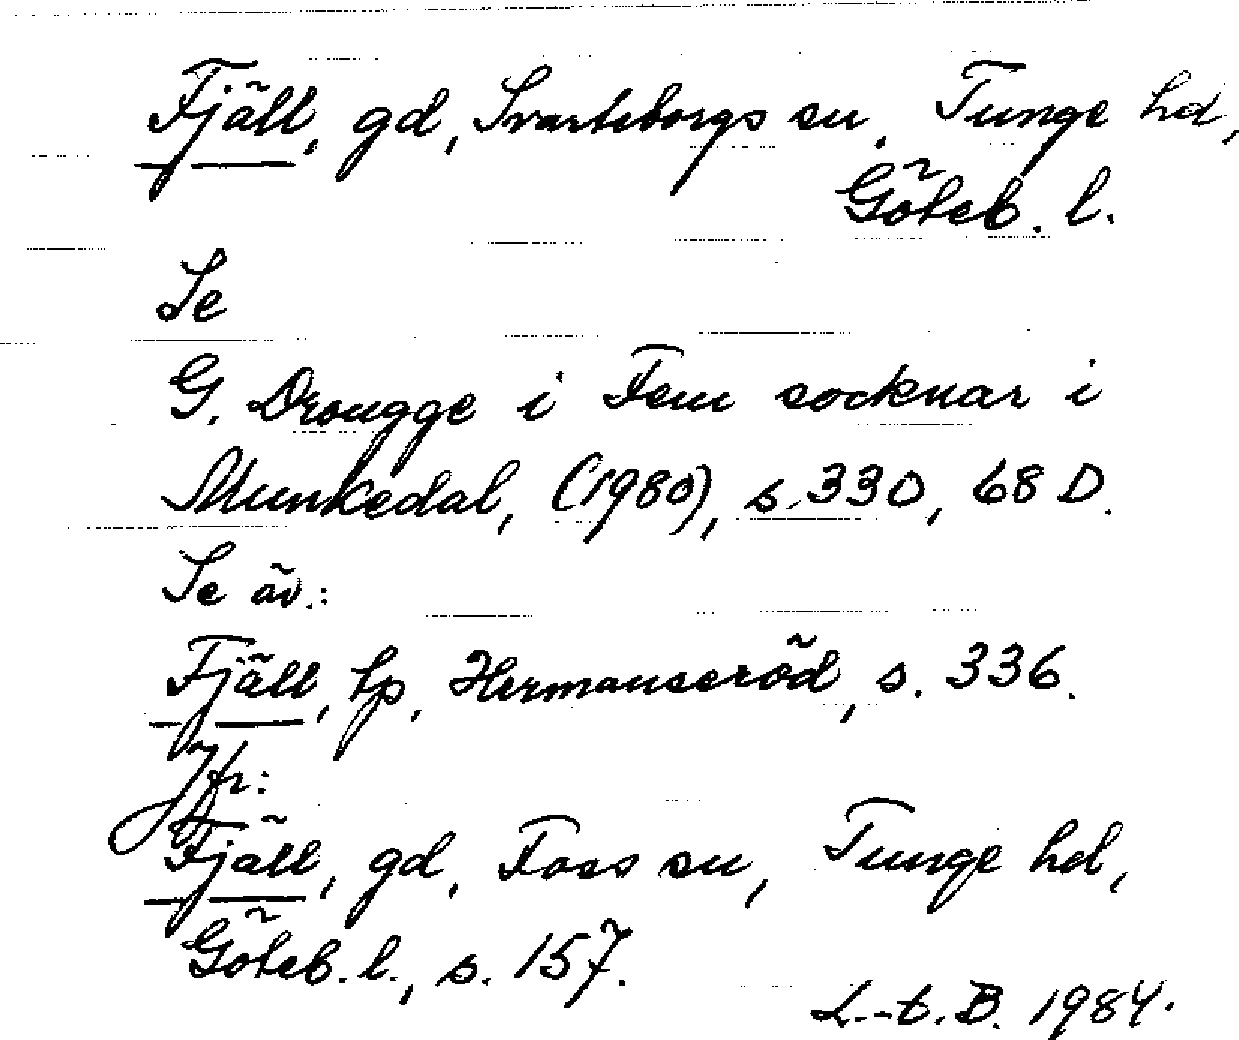 Fjäll, gd, Svarteborgs sn, Tunge hd,
Göteb. l.
Se
G. Drougge i Fem socknar i
Munkedal, (1980), s. 330, 68 D.
Se äv.:
Fjäll, tp, Hermanseröd, s. 336.
Jfr:
Fjäll, gd, Foss sn, Tunge hd,
Göteb. l., s. 157.
L.-t. B. 1984.